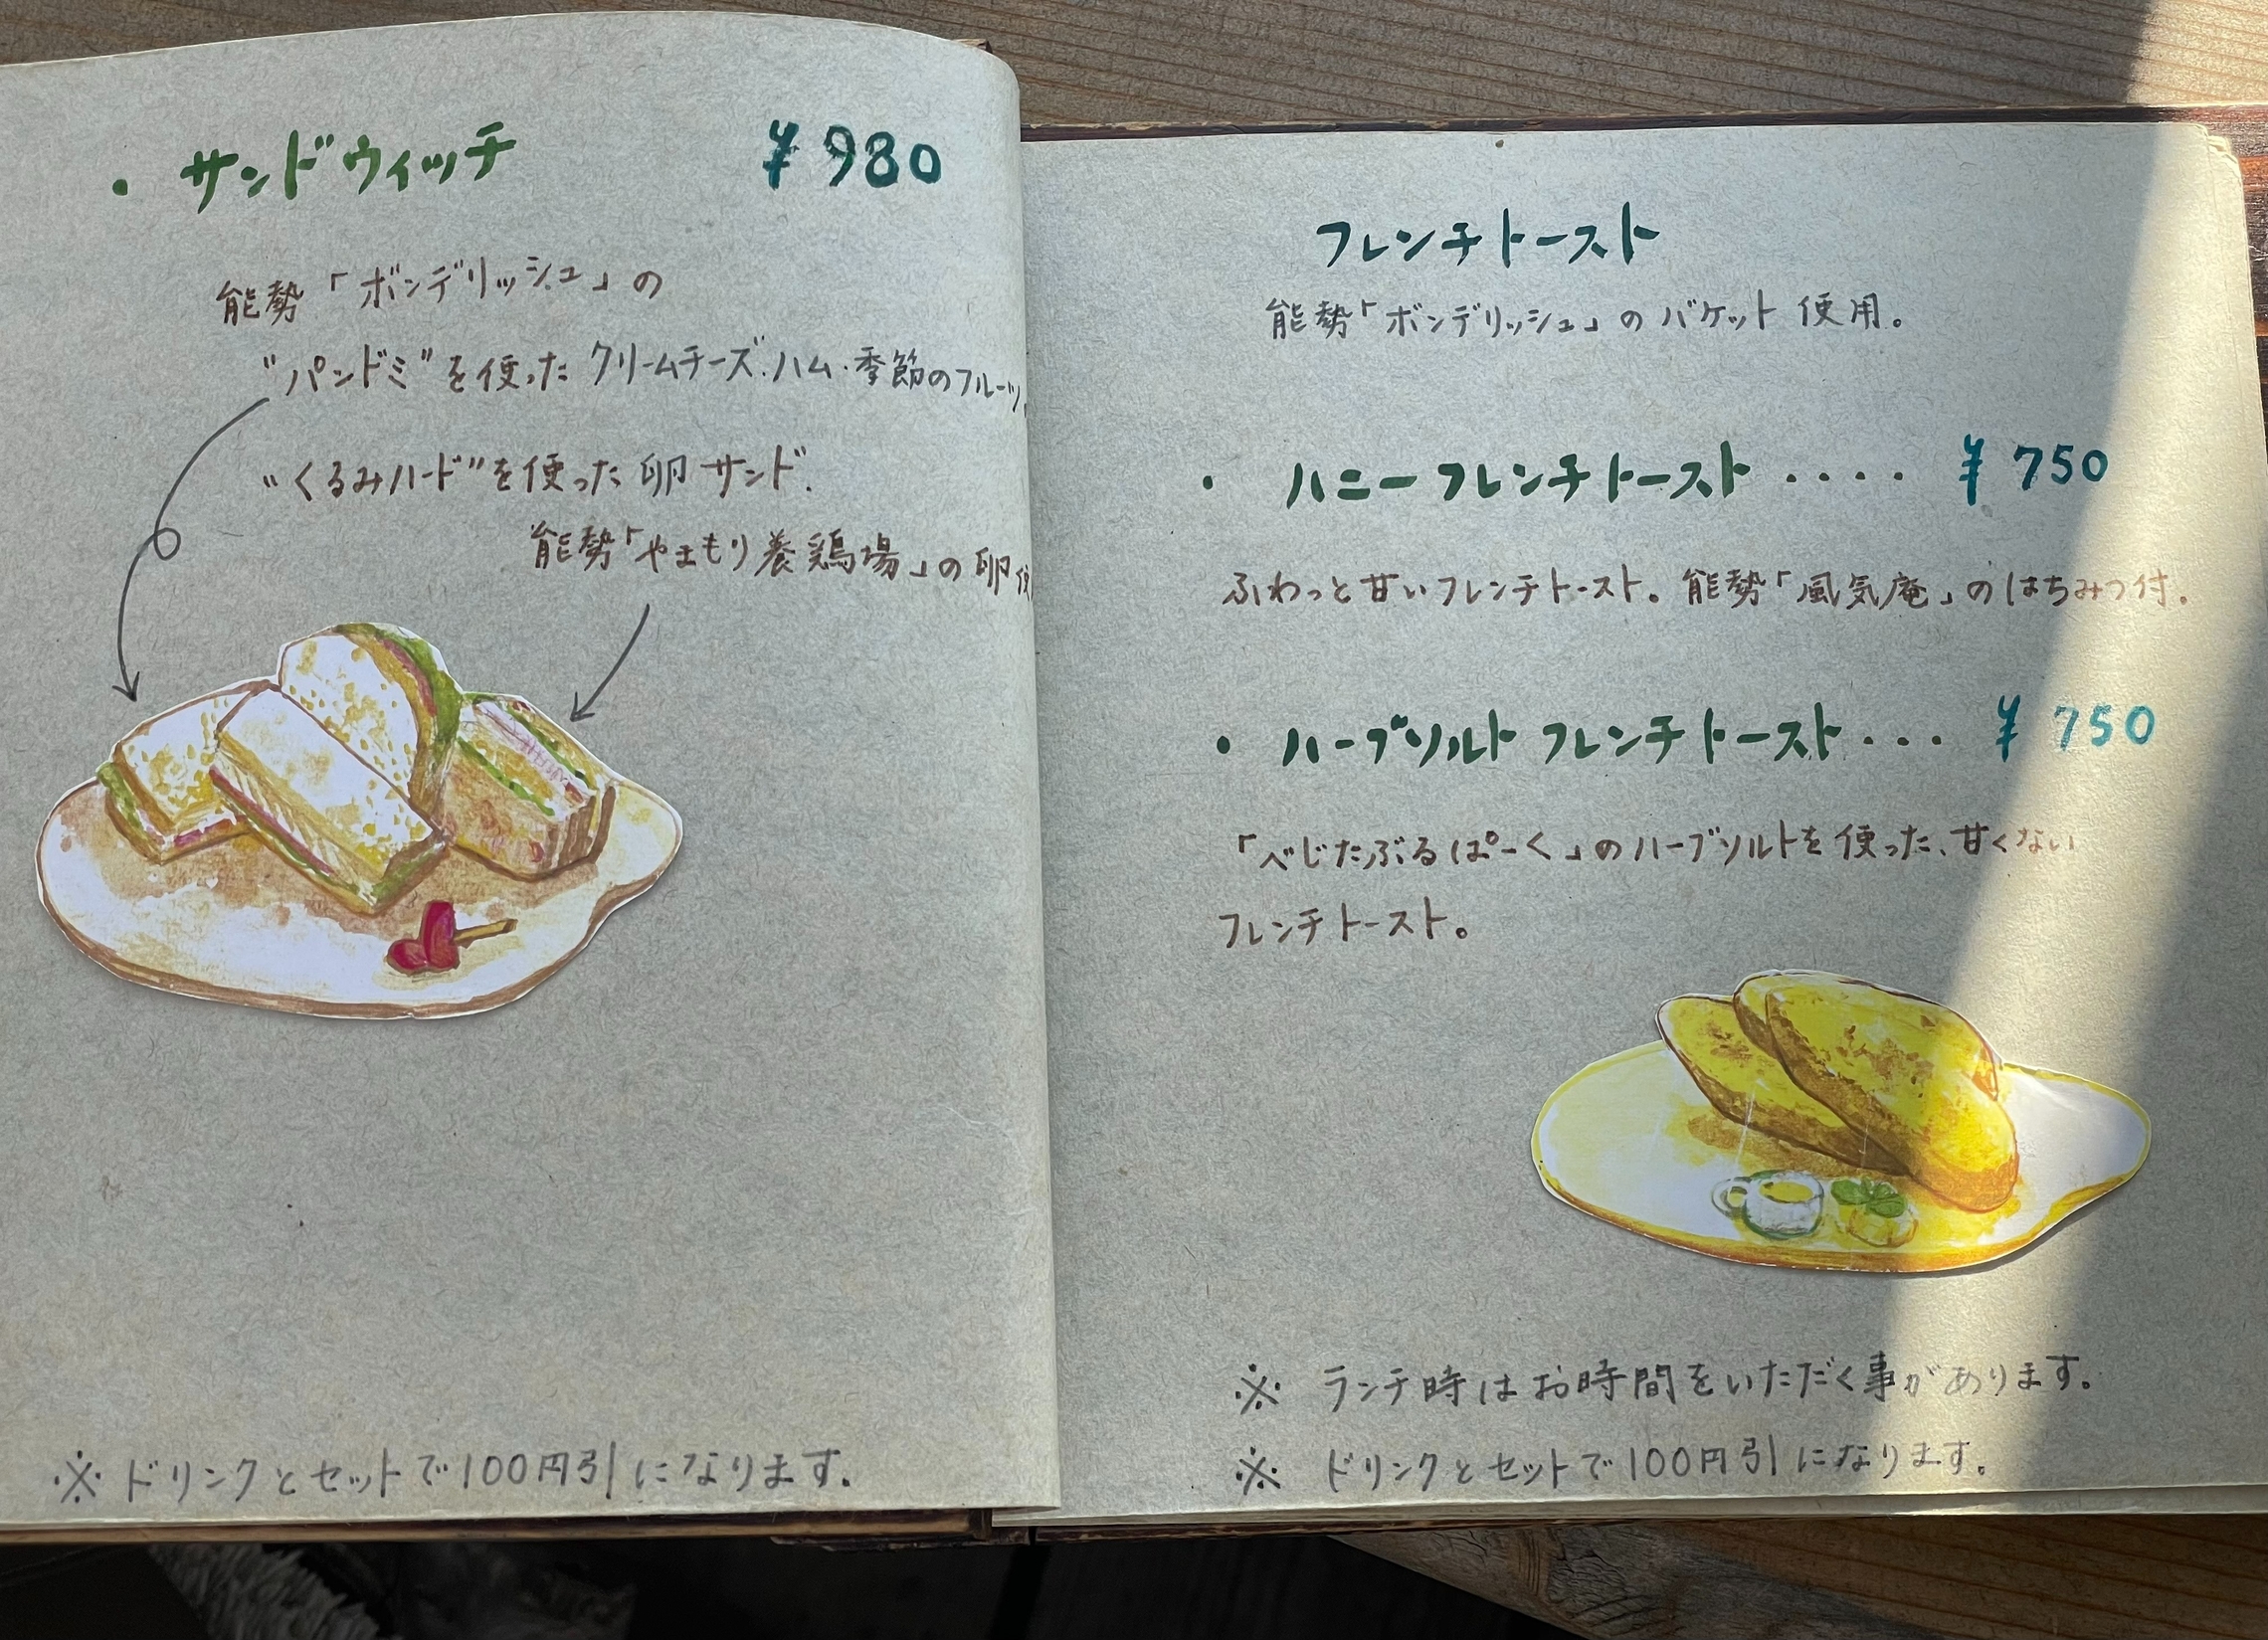 ・サンドウィッチ ¥980
能勢「ボンデリッシュ」の
"パンドミ"を使った クリームチーズ.ハム・季節のフルーツ
"くるみハード"を使った 卵サンド.
能勢「やまもり養鶏場」の卵使
※ ドリンクとセットで100円引になります。
フレンチトースト
能勢「ボンデリッシュ」のバケット使用。
・ハニーフレンチトースト ・・・・ ¥750
ふわっと甘いフレンチトースト。能勢「風気庵」のはちみつ付.
・ハーブソルト フレンチトースト・・・ ¥750
「べじたぶるぱーく」のハーブソルトを使った、甘くない
フレンチトースト。
※ ランチ時はお時間をいただく事があります。
※ ドリンクとセットで100円引になります。